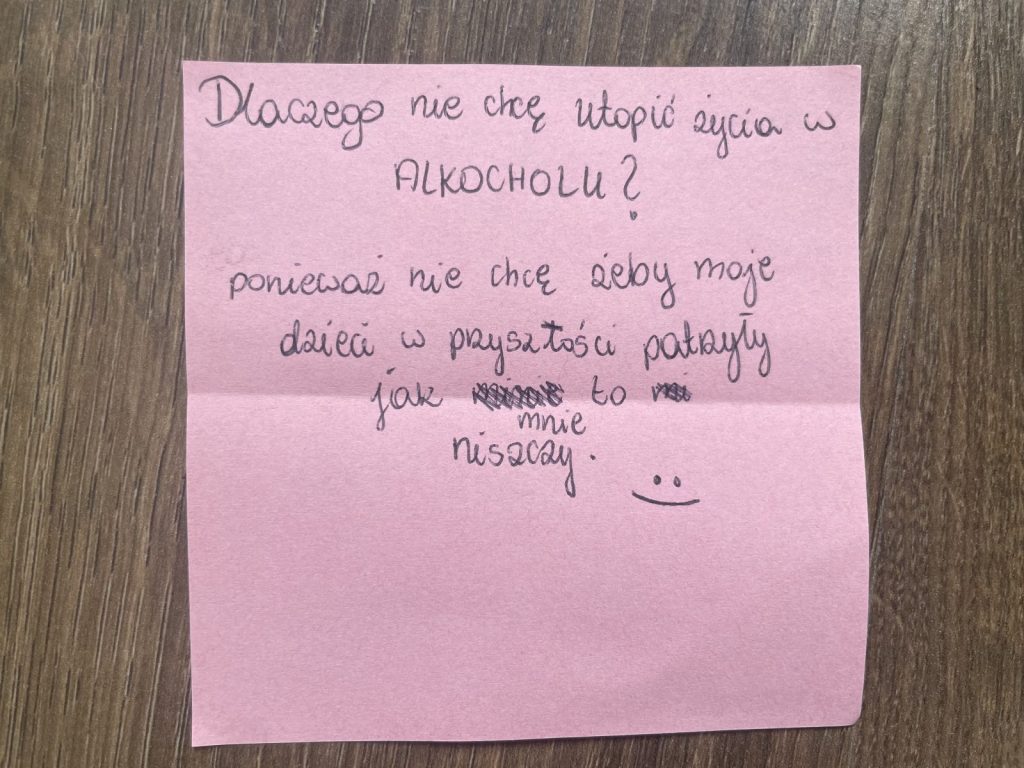 Dlaczego nie chcę utopić życia w
ALKOCHOLU?
ponieważ nie chcę żeby moje
dzieci w przyszłości patrzyły
jak to
mnie
niszczy.